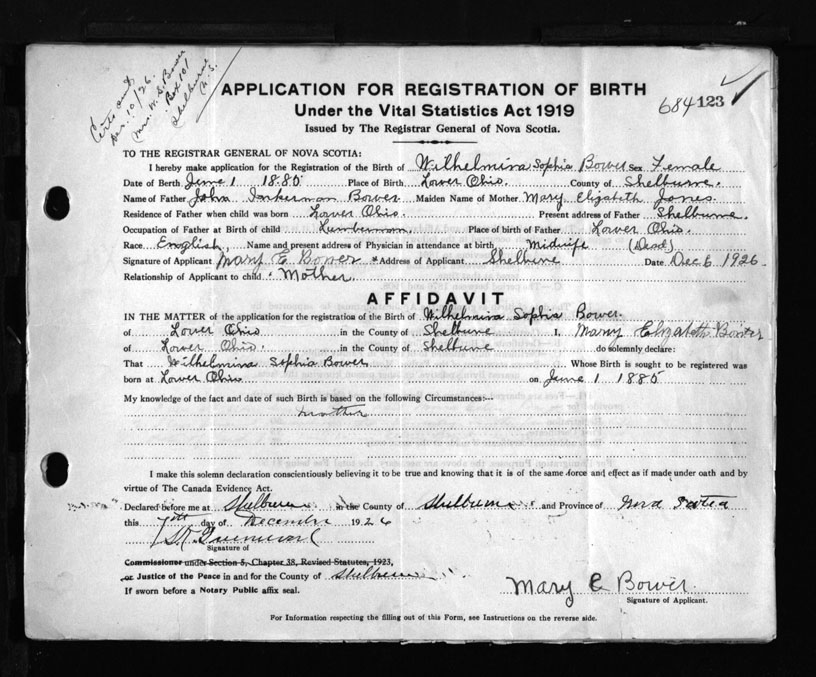 Certs sent
Dec. 10/26.
Mrs. W. S. Bower
Box 101
Shelburne
N. S.
APPLICATION FOR REGISTRATION OF BIRTH
684 123
Under the Vital Statistics Act 1919
Issued by The Registrar General of Nova Scotia.
TO THE REGISTRAR GENERAL OF NOVA SCOTIA:
I hereby make application for the Registration of the Birth of Wilhelmina Sophia Bower Sex Female
Date of Birth June 1 1885 Place of Birth Lower Ohio. County of Shelburne.
Name of Father John Inkerman Bower Maiden Name of Mother Mary Elizabeth Jones.
Residence of Father when child was born Lower Ohio. Present address of Father Shelburne.
Occupation of Father at Birth of child Lumberman. Place of birth of Father Lower Ohio.
Race English, Name and present address of Physician in attendance at birth Midwife (Dead)
Signature of Applicant Mary E Bower * Address of Applicant Shelburne Date Dec 6 1926
Relationship of Applicant to child Mother
AFFIDAVIT
IN THE MATTER of the application for the registration of the Birth of Wilhelmina Sophia Bower.
of Lower Ohio in the County of Shelburne I, Mary Elizabeth Bower
of Lower Ohio. in the County of Shelburne do solemnly declare:
That Wilhelmina Sophia Bower Whose Birth is sought to be registered was
born at Lower Ohio on June 1 1885
My knowledge of the fact and date of such Birth is based on the following Circumstances:—
mother
I make this solemn declaration conscientiously believing it to be true and knowing that it is of the same force and effect as if made under oath and by
virtue of The Canada Evidence Act.
Declared before me at Shelburne in the County of Shelburne and Province of Nova Scotia
this 7th day of December 1926
Signature of
Commissioner under Section 5, Chapter 38, Revised Statutes, 1923,
or Justice of the Peace in and for the County of Shelburne
If sworn before a Notary Public affix seal.
Mary E Bower
Signature of Applicant.
For Information respecting the filling out of this Form, see Instructions on the reverse side.